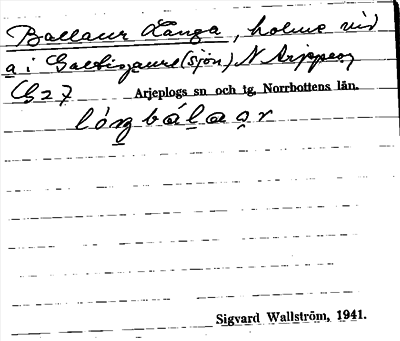 Ballaur Långa, holme vid
a i Galtisjaure (sjön) N Arjeplog
Cb 27 Arjeplogs sn och tg, Norrbottens län.
lóŋbálaər
Sigvard Wallström, 1941.